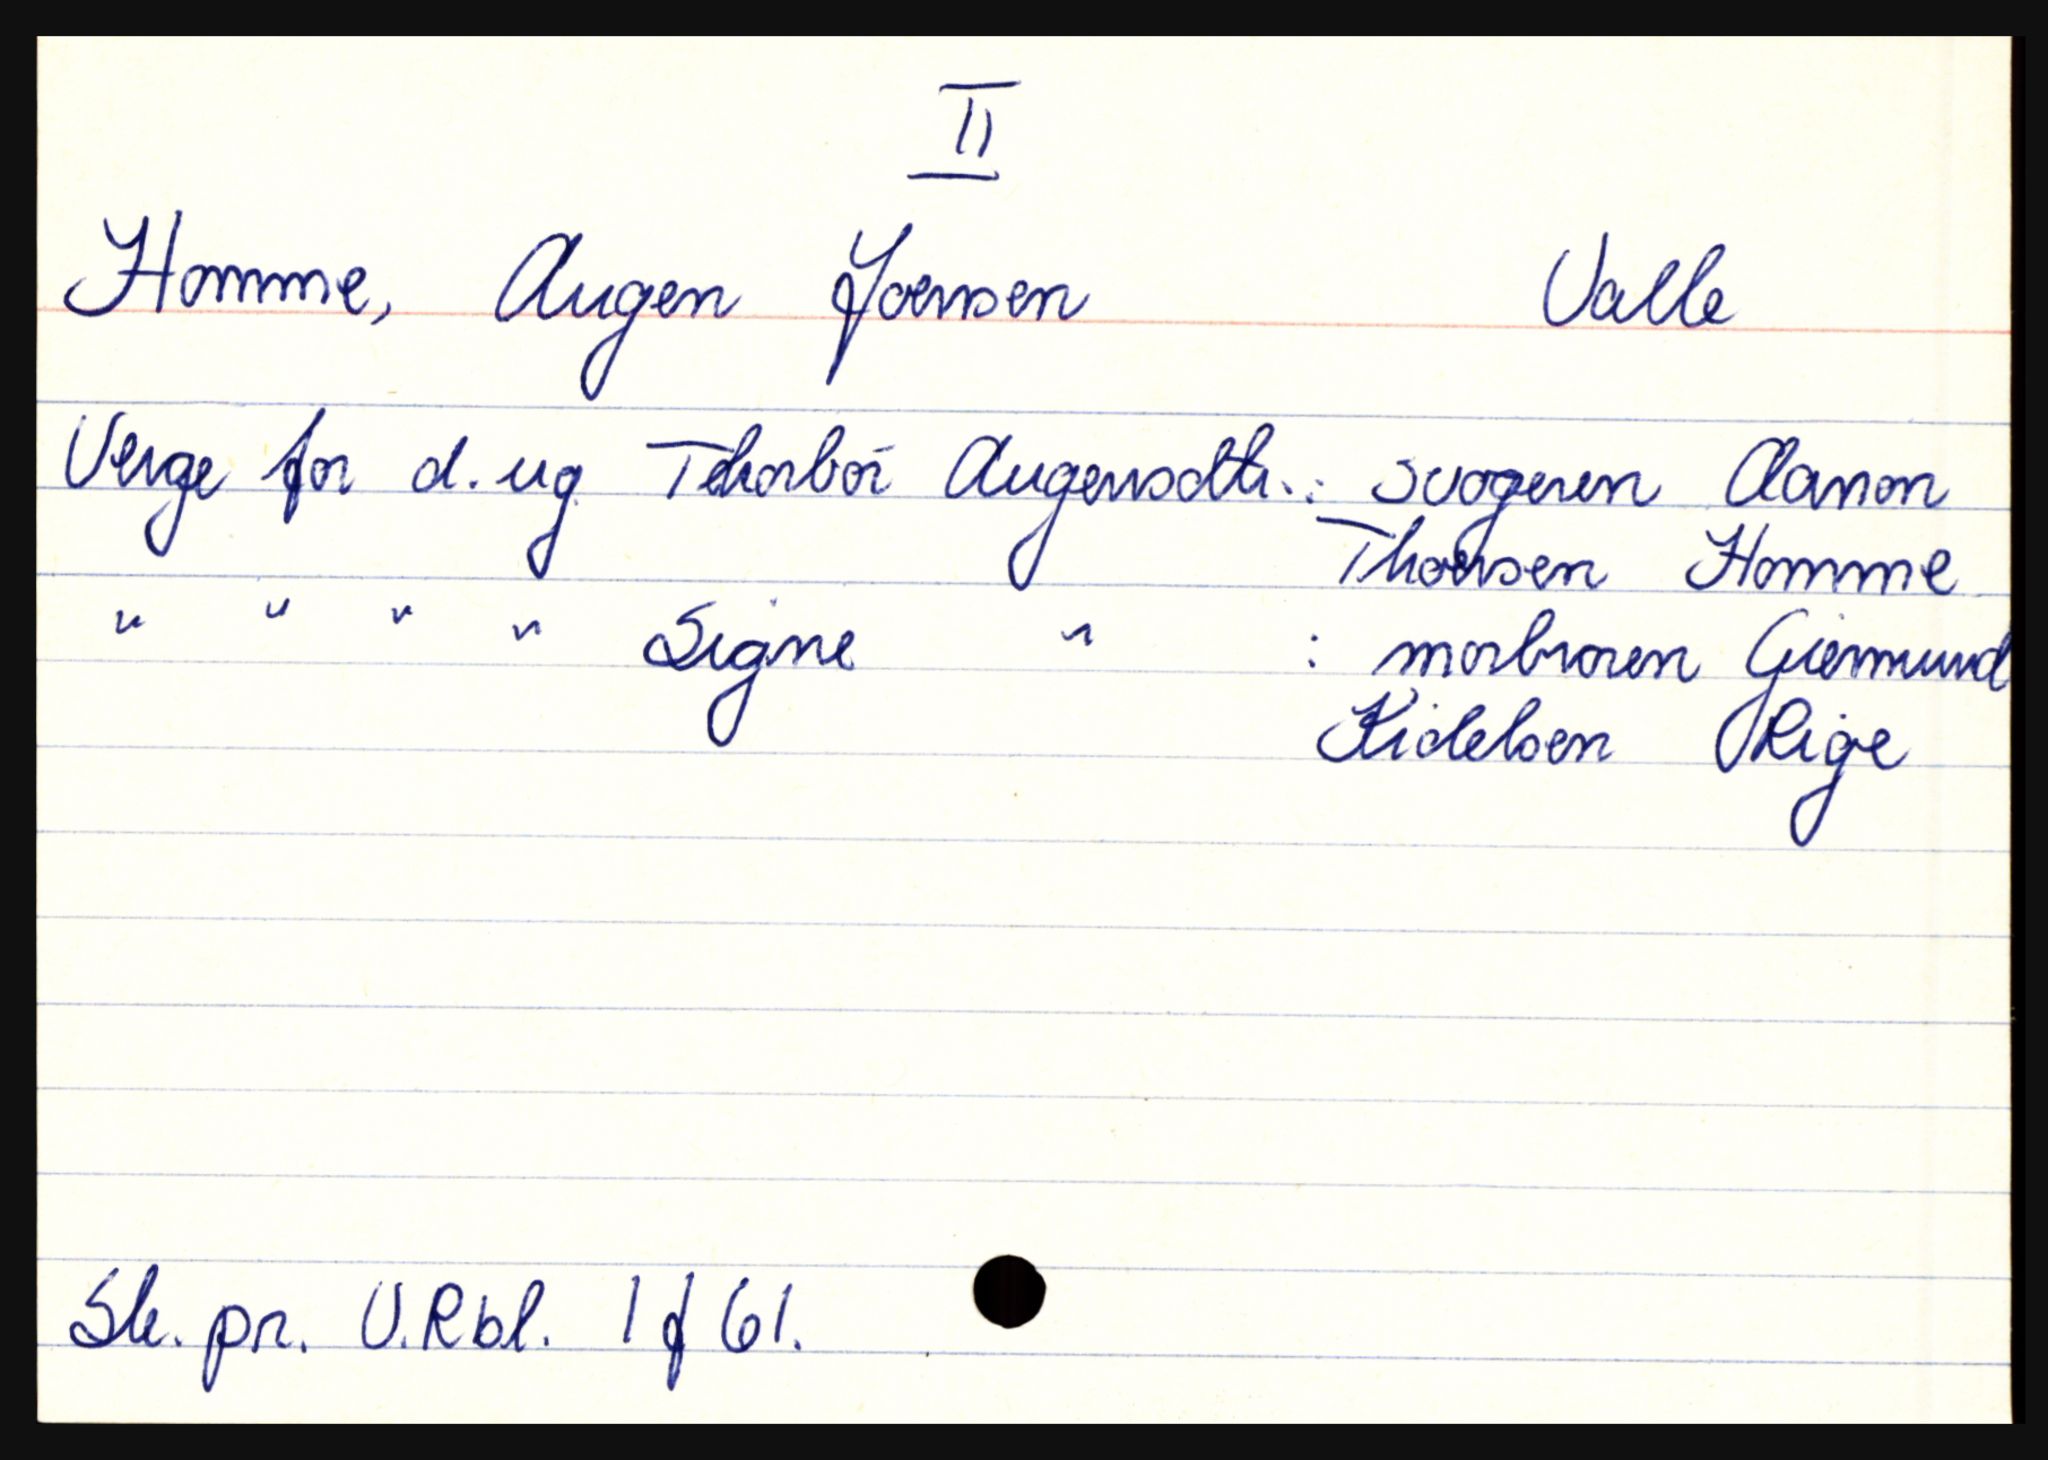 II
Homme, Augen Joensen Valle
Verge for d. ug Thorboi Augensdtr.: svogeren Aanon
Thoersen Homme
" " " " Signe " : morbroren Giermund
Kidelsen Rige
Sk. pr. V.Rbl. 1 f 61.